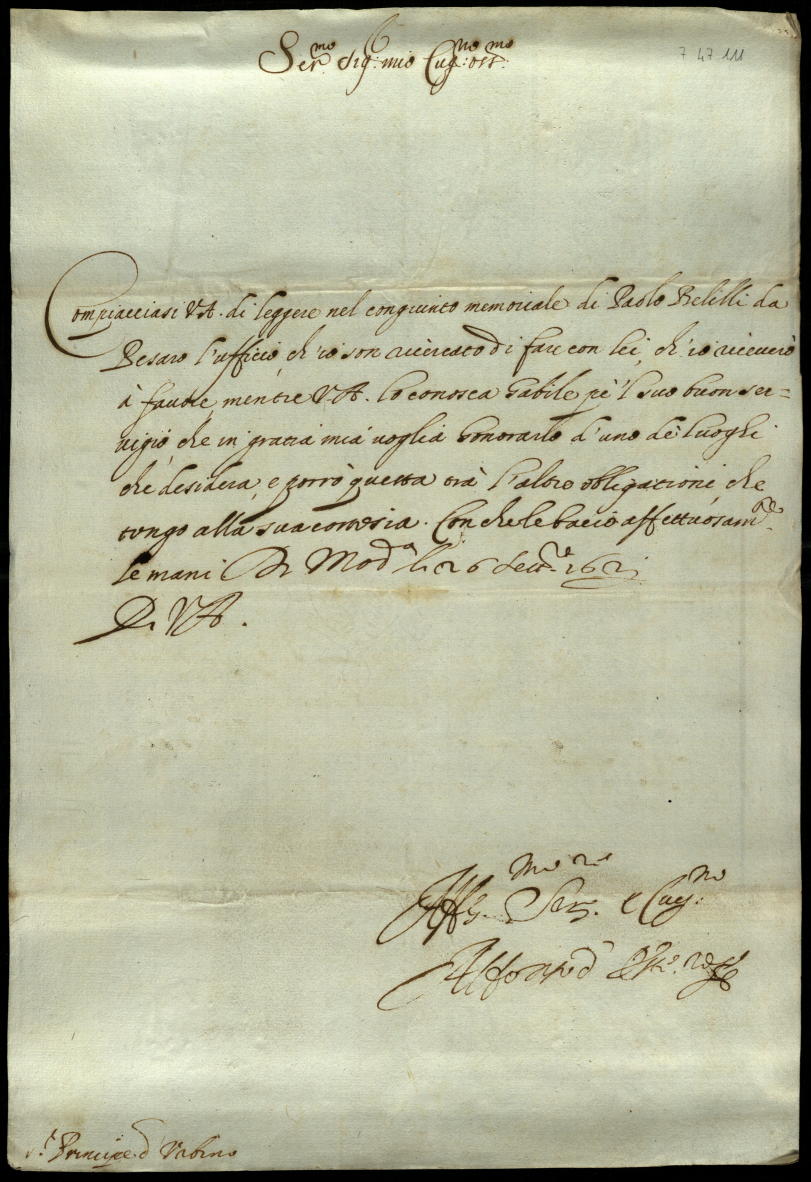 Ser.mo Sig: mio Cug:no oss:mo
7 47 111
Compiacciasi V.A. di leggere nel congiunto memoriale di Paolo Belilli da
Pesaro l'ufficio, ch'io son ricercato di fare con lei, ch'io riceverò
à favore, mentre V.A. lo conosca habile pe'l suo buon ser=
vigio, che in gratia mia voglia honorarlo d'uno de luoghi
che desidera, e porrò questa trà l'altre obligationi, che
tengo alla sua cortesia. Con che le bacio affettuosam.te
le mani Di Mod.a li 26 Sett.e 1621
Di V.A.
Aff.mo Ser.re e Cug:no
Alfonso d'Este
S.r Principe d'Urbino